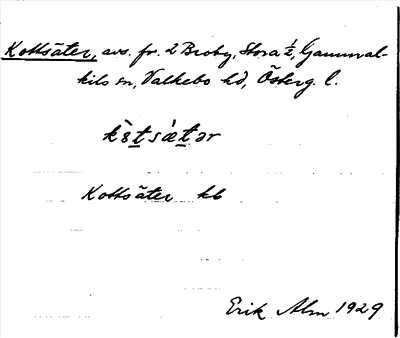 Kottsäter, avs. fr. 2 Broby, Stora ½, Gammal-
kils sn, Valkebo hd, Österg. l.
Kottsäter kb
Erik Alm 1929